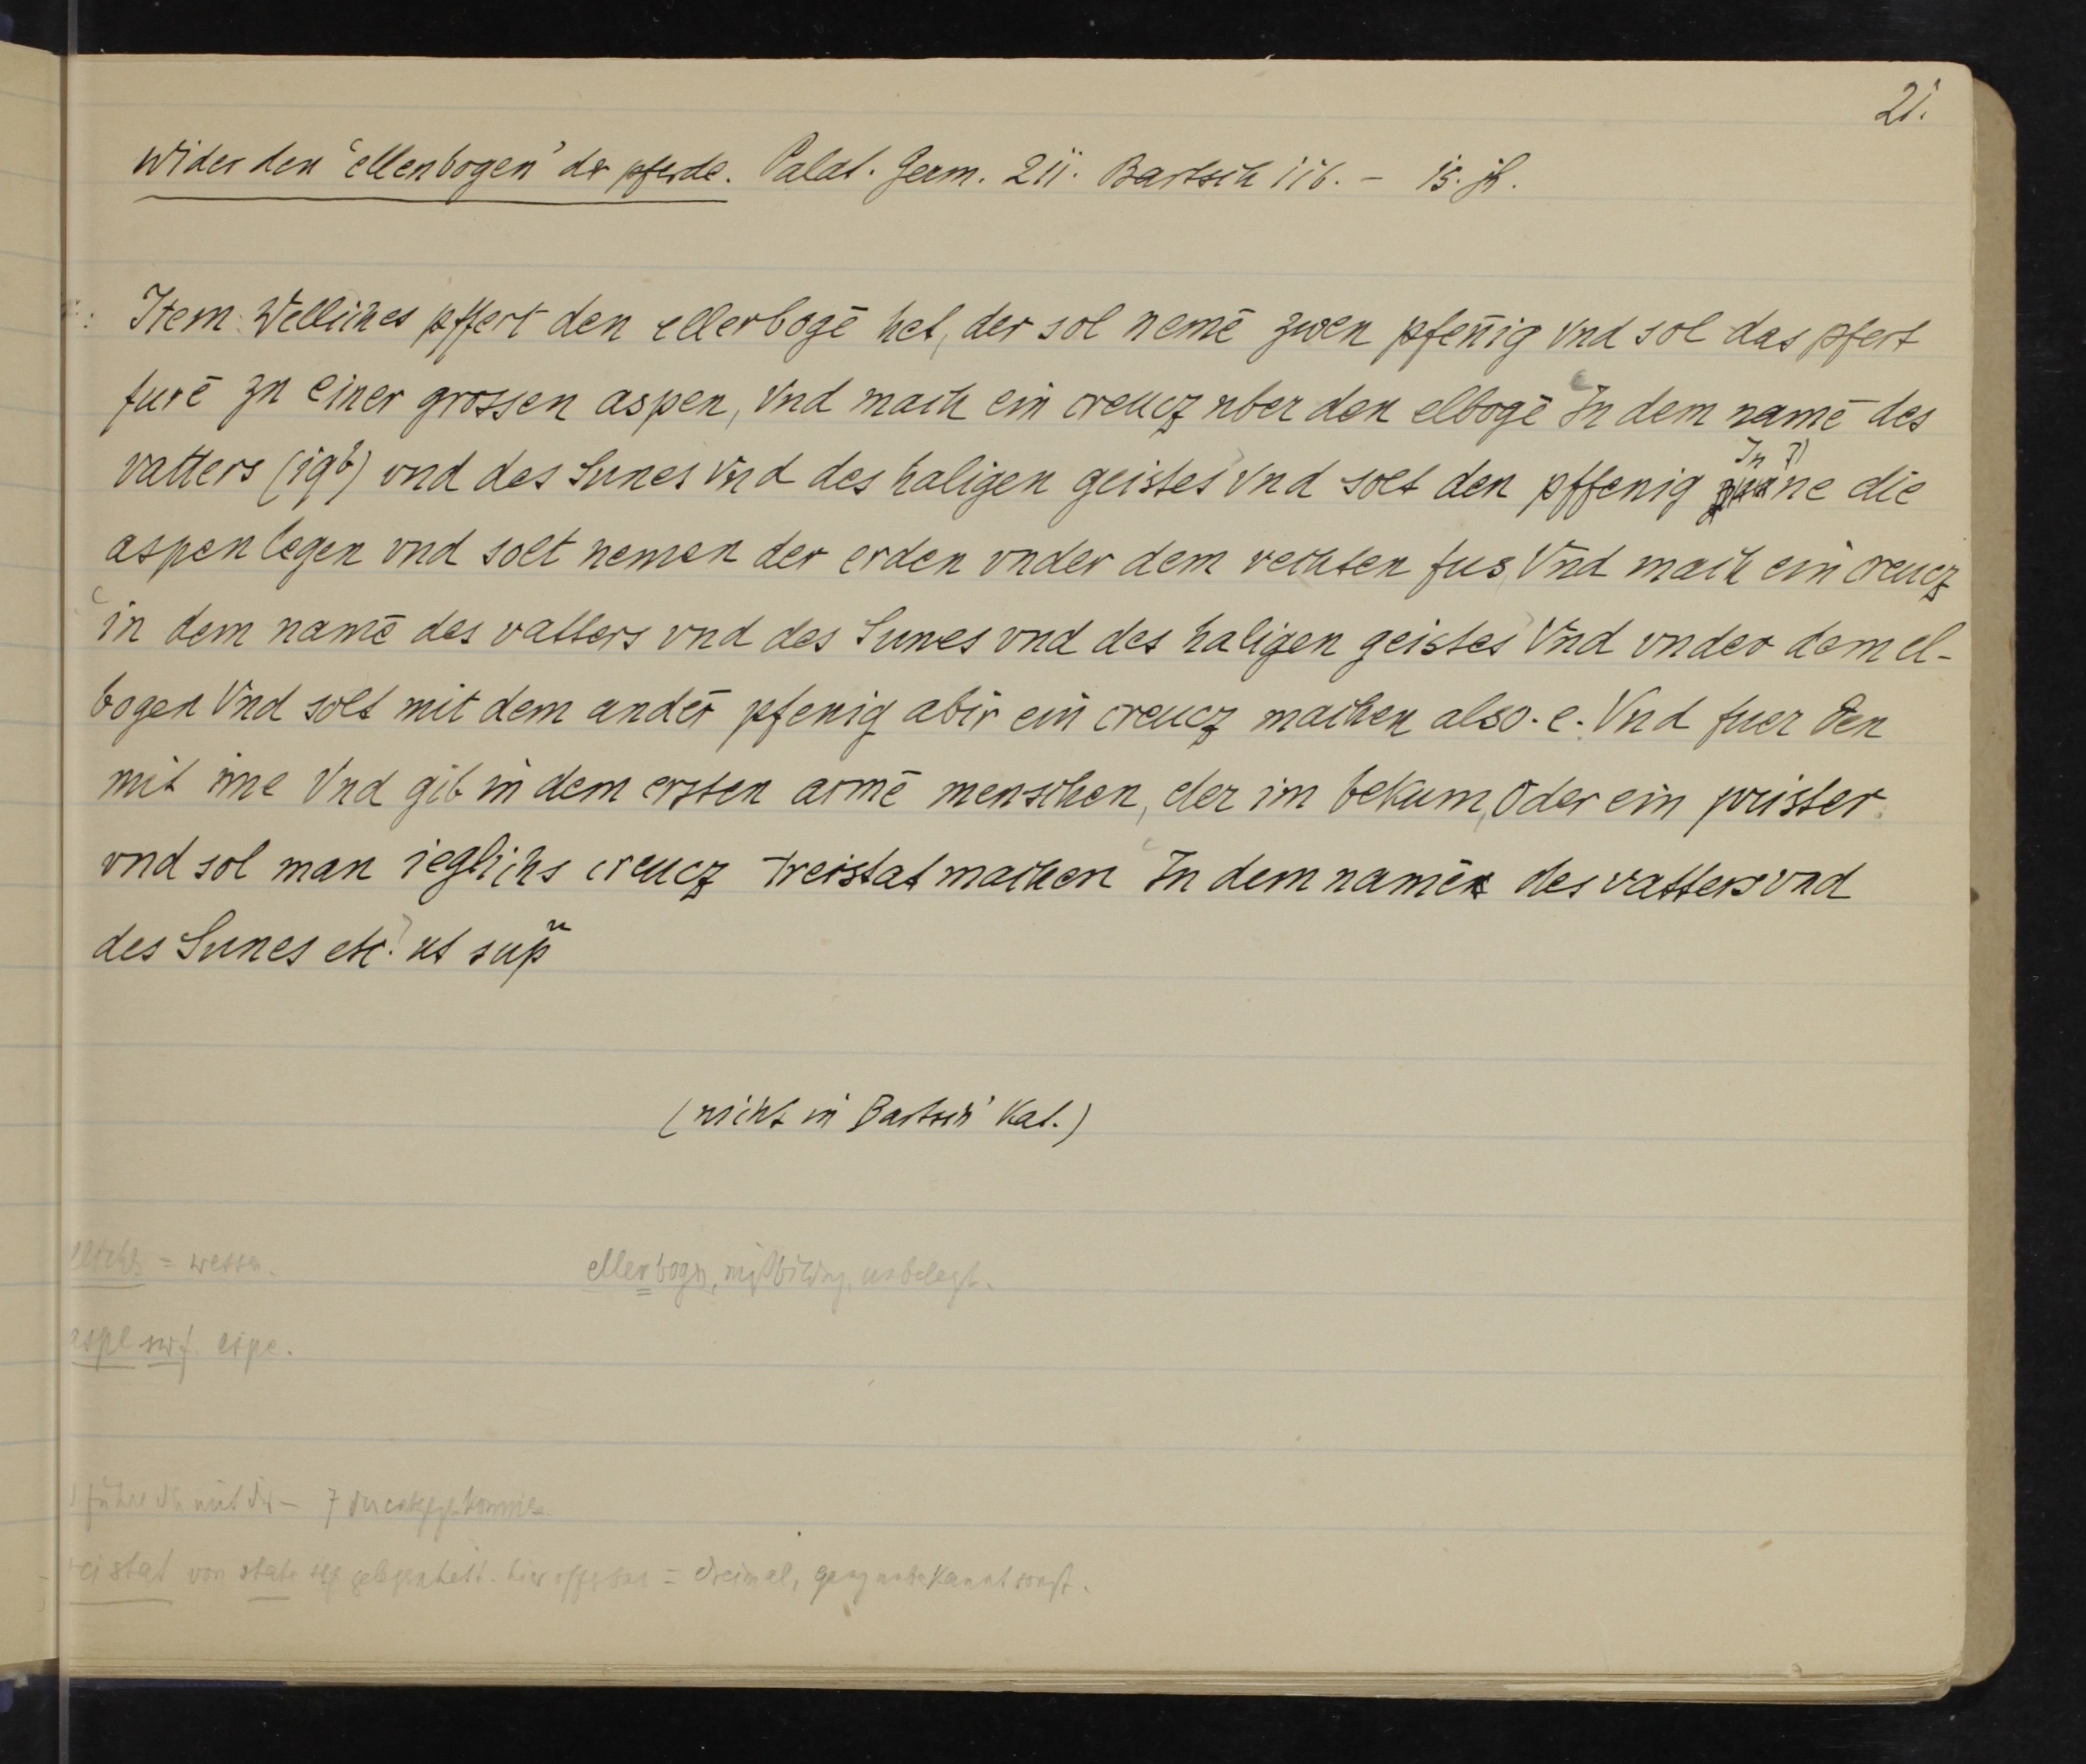 21.
Wider den 'ellenbogen' der pferde. Palat. Germ. 211. Bartsch 116. – 15. jh.
Item Welliches pffert den ellerbogē het, der sol nemē zwen pfeñig vnd sol das pfert
furē zu einer grossen aspen, vnd mach ein creucz uber den elbogē In dem namē des
vatters (19b) vnd des Sunes vnd des haligen geistes vnd solt den pffenig
In 7)
ne die
aspen legen vnd solt nemen der erden vnder dem rechten fus, Vnd mach ein creucz
in dem namē des vatters vnd des Sunes vnd des haligen geistes Vnd vnder dem el-
bogen Vnd solt mit dem andēr pfenig abir ein creucz machen also. e. Vnd fuer den
mit ime Vnd gib in dem ersten armē menschen, der im bekum, Oder ein prister.
vnd sol man ieglichs creucz treistat machen In dem namēn des vatters vnd
des Sunes etc. ut sup
(nicht in Bartsch' Kat.)
= wessen.
ellerbogn, mißbildg, unbelegt.
aspe swf. espe.
führe mit dir – 7
reistat von state gelegenheit. hier offenbar = dreimal, ganz unbekannt sonst.